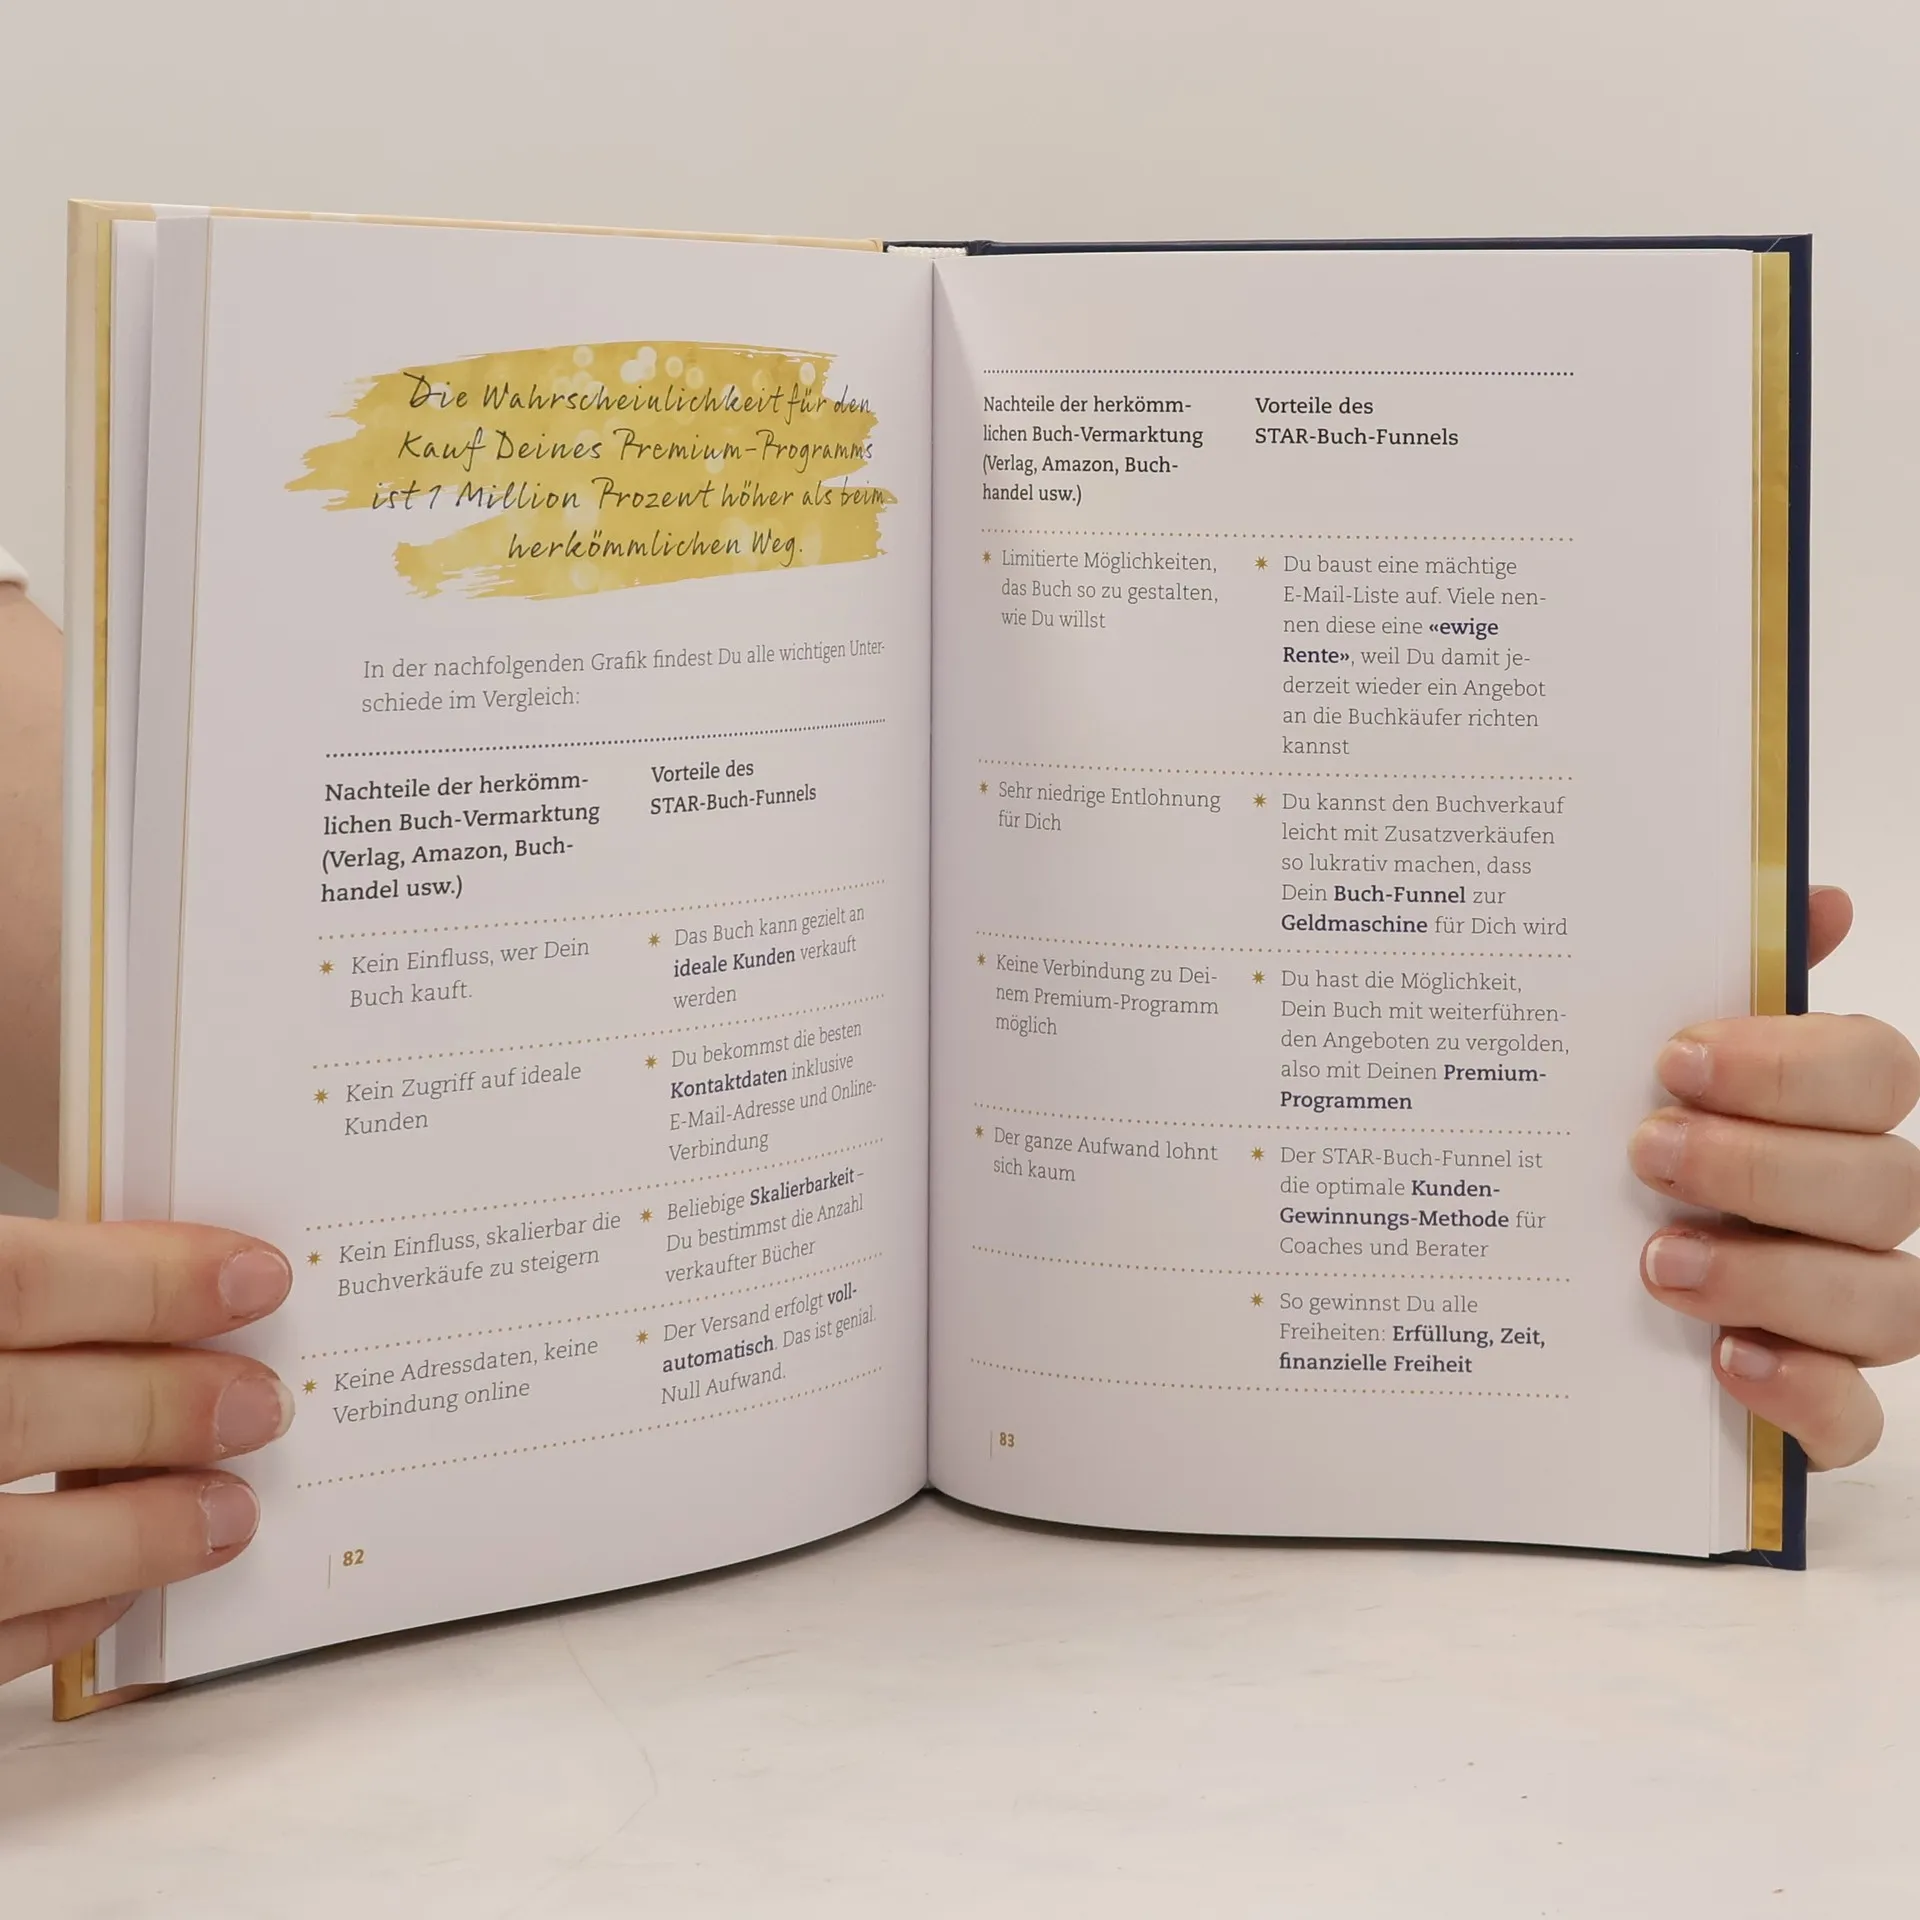 Die Wahrscheinlichkeit für den
Kauf Deines Premium-Programms
ist 1 Million Prozent höher als beim
herkömmlichen Weg.
In der nachfolgenden Grafik findest Du alle wichtigen Unter-
schiede im Vergleich:
Nachteile der herkömm-
lichen Buch-Vermarktung
(Verlag, Amazon, Buch-
handel usw.)
Vorteile des
STAR-Buch-Funnels
Kein Einfluss, wer Dein
Buch kauft.
Das Buch kann gezielt an
ideale Kunden verkauft
werden
Kein Zugriff auf ideale
Kunden
Du bekommst die besten
Kontaktdaten inklusive
E-Mail-Adresse und Online-
Verbindung
Kein Einfluss, skalierbar die
Buchverkäufe zu steigern
Beliebige Skalierbarkeit –
Du bestimmst die Anzahl
verkaufter Bücher
Keine Adressdaten, keine
Verbindung online
Der Versand erfolgt voll-
automatisch. Das ist genial.
Null Aufwand.
82
Nachteile der herkömm-
lichen Buch-Vermarktung
(Verlag, Amazon, Buch-
handel usw.)
Vorteile des
STAR-Buch-Funnels
Limitierte Möglichkeiten,
das Buch so zu gestalten,
wie Du willst
Du baust eine mächtige
E-Mail-Liste auf. Viele nen-
nen diese eine «ewige
Rente», weil Du damit je-
derzeit wieder ein Angebot
an die Buchkäufer richten
kannst
Sehr niedrige Entlohnung
für Dich
Du kannst den Buchverkauf
leicht mit Zusatzverkäufen
so lukrativ machen, dass
Dein Buch-Funnel zur
Geldmaschine für Dich wird
Keine Verbindung zu Dei-
nem Premium-Programm
möglich
Du hast die Möglichkeit,
Dein Buch mit weiterführen-
den Angeboten zu vergolden,
also mit Deinen Premium-
Programmen
Der ganze Aufwand lohnt
sich kaum
Der STAR-Buch-Funnel ist
die optimale Kunden-
Gewinnungs-Methode für
Coaches und Berater
So gewinnst Du alle
Freiheiten: Erfüllung, Zeit,
finanzielle Freiheit
83